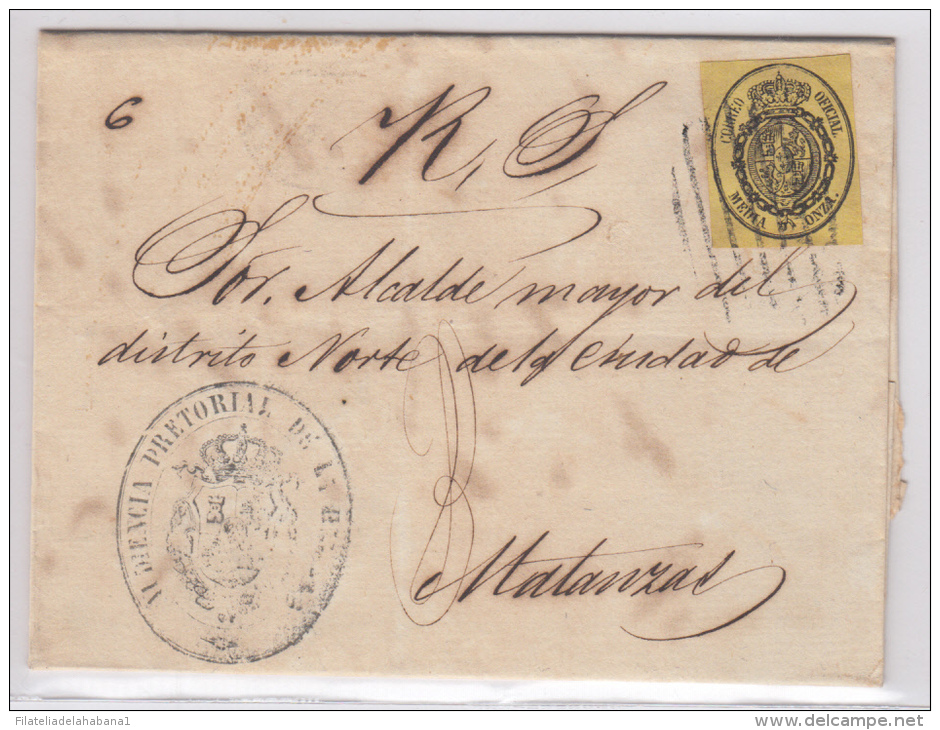 6
R, S
CORREO OFICIAL
MEDIA ONZA.
Sor. Alcalde mayor del
distrito Norte de la Ciudad de
Matanzas
AUDIENCIA PRETORIAL DE LA
Filateliadelahabana1
www.delcampe.net